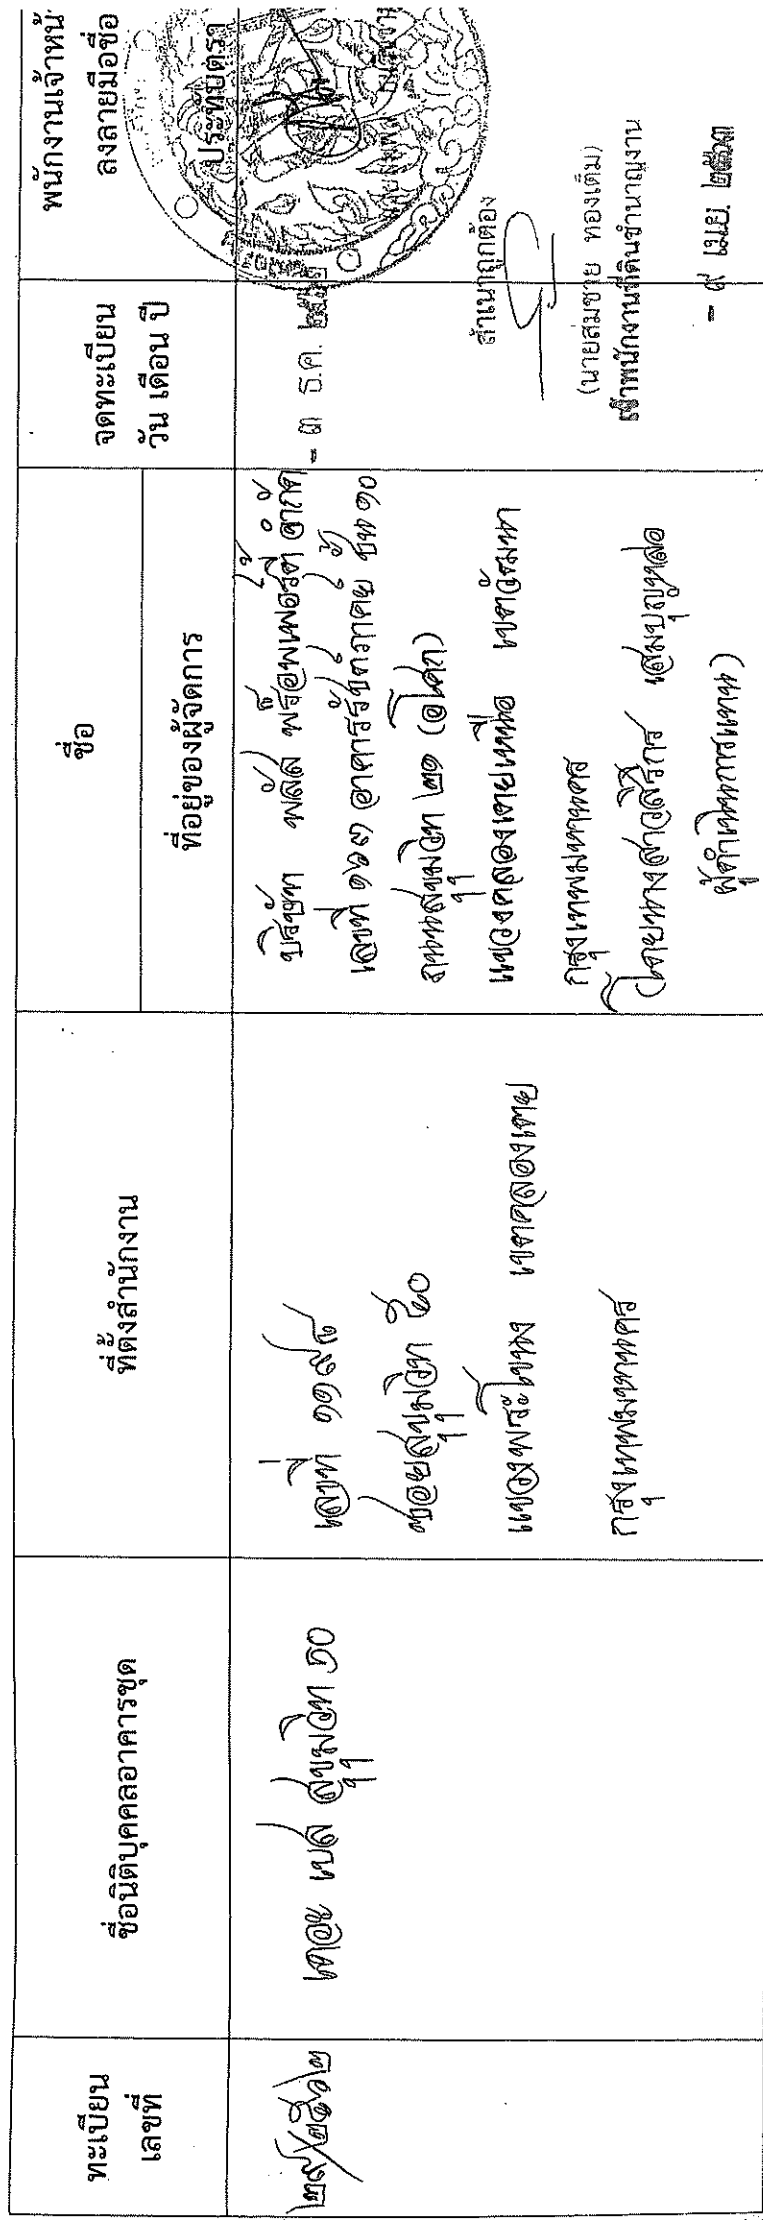 ทะเบียน
เลขที่
ชื่อนิติบุคคลอาคารชุด
ที่ตั้งสำนักงาน
ชื่อ
ที่อยู่ของผู้จัดการ
จดทะเบียน
วัน เดือน ปี
พนักงานเจ้าหน้
ลงลายมือชื่อ
ประทับตรา
๒๙/๒๕๖๒
เดอะ เบส สุขุมวิท ๕๐
เลขที่ ๑๑๙๕
ซอยสุขุมวิท ๕๐
แขวงพระโขนง เขตคลองเตย
กรุงเทพมหานคร
บริษัท พลัส พร็อพเพอร์ตี้ จำกัด
เลขที่ ๑๖๓ อาคารรัชต์ภาคย์ ชั้น ๑๐
ถนนสุขุมวิท ๒๑ (อโศก)
แขวงคลองเตยเหนือ เขตวัฒนา
กรุงเทพมหานคร
(โดยนางสาวสิริกร เสมบุญหล่อ
ผู้ดำเนินการแทน)
- ๓ ธ.ค. ๒๕๖๒
สำเนาถูกต้อง
(นายสมชาย ทองเต็ม)
เจ้าพนักงานที่ดินชำนาญงาน
- ๙ เม.ย. ๒๕๖๓